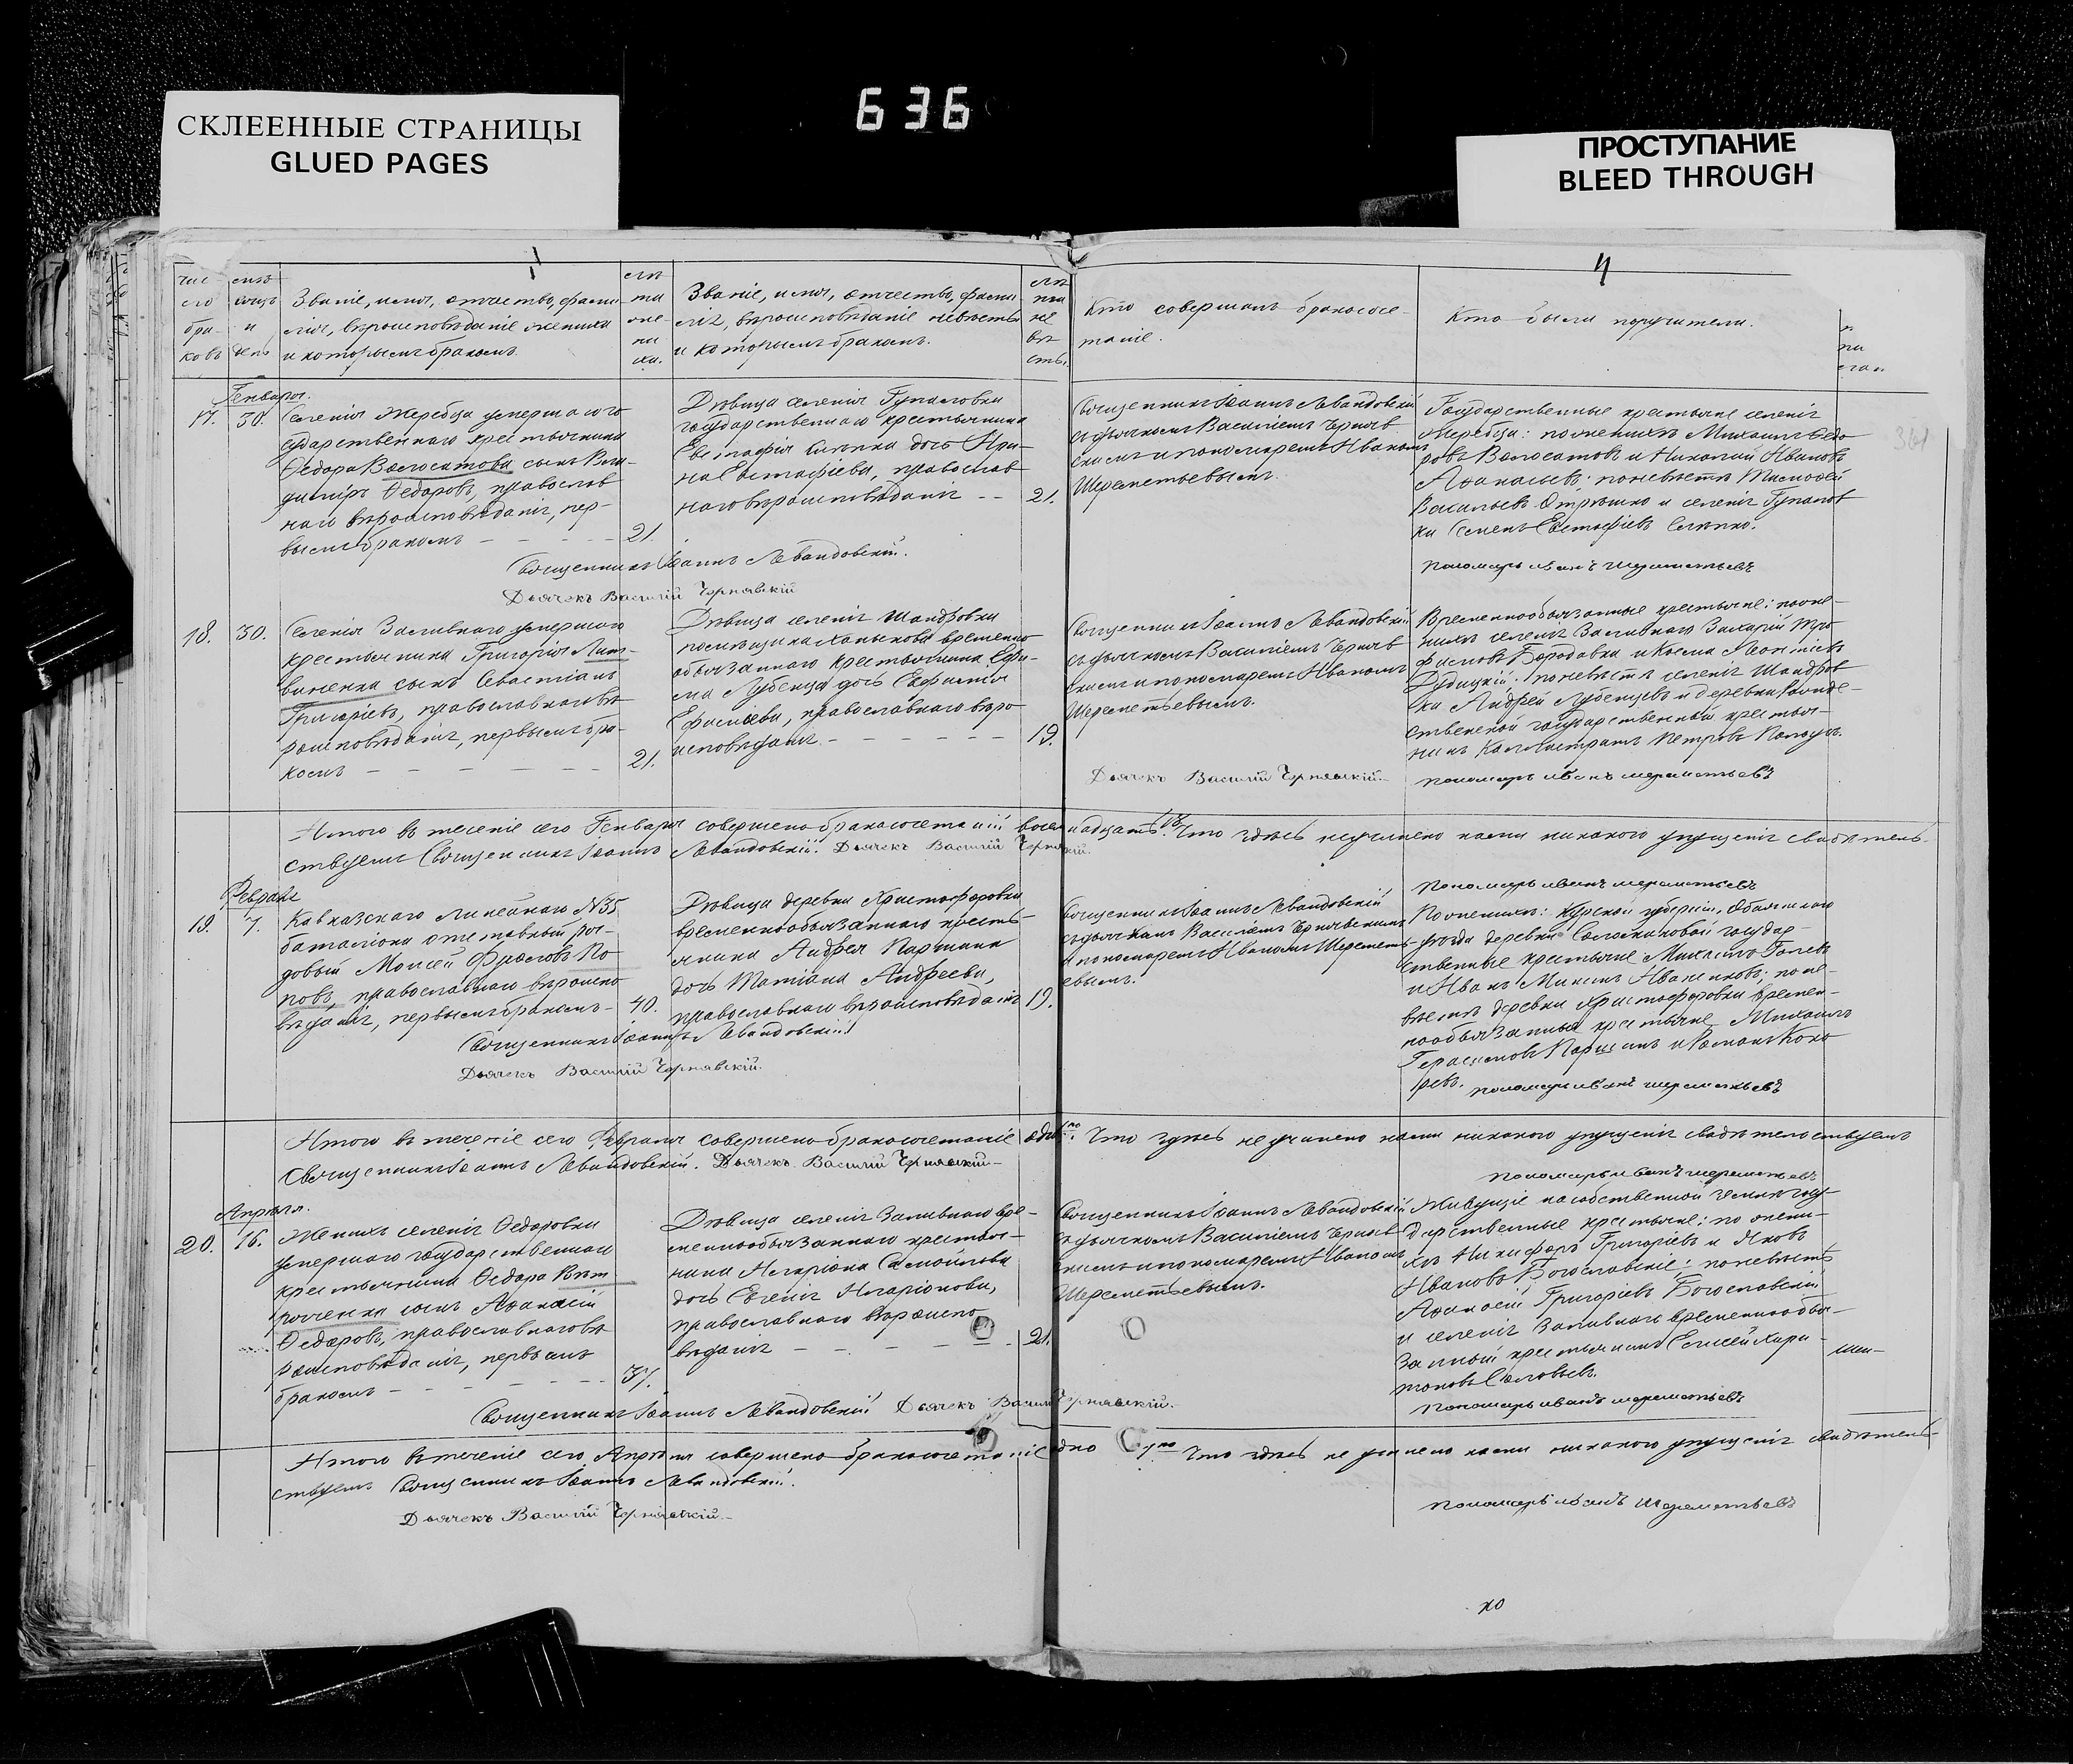 СКЛЕЕННЫЕ СТРАНИЦЫ
GLUED PAGES
636
ПРОСТУПАНИЕ
BLEED THROUGH
4
Званіе, имя, отчество, фами-
лія, вѣроисповѣданіе жениха
и которымъ бракомъ.
Званіе, имя, отчество, фами-
лія, вѣроисповѣданіе невѣсты
и которымъ бракомъ.
Кто совершалъ бракосоче-
таніе.
Кто были поручители.
Генваря.
17.
30.
Селенія Жеребца умершаго го
сударственнаго крестьянина
Ѳедора Волосатова сынъ Вла-
диміръ Ѳедоровъ, православ
наго вѣроисповѣданія, пер-
вымъ бракомъ
21.
Дѣвица селенія
государственнаго крестьянина
Евстафія дочь Ири-
на Евстафіева, православ
наго вѣроисповѣданія
21.
Священникъ Іоаннъ Левандовскій
съ дьячкомъ Василіемъ Черняв
скимъ и пономаремъ Иваномъ
Шереметьевымъ.
Государственные крестьяне селенія
Жеребца: по женихѣ Михаилъ Ѳедо
ровъ Волосатовъ и Николай Ивановъ
Аѳанасьевъ; по невѣстѣ Тимоѳей
Васильевъ и селенія
ки Семенъ Евстафіевъ
361
Священникъ Іоаннъ Левандовскій.
Дьячекъ Василій Чернявскій
Пономарь Иванъ Шереметьевъ
18.
30.
Селенія Заливнаго умершаго
крестьянина Григорія Лит-
виненка сынъ Севастіанъ
Григоріевъ, православнаго вѣ
роисповѣданія, первымъ бра-
комъ
21.
Дѣвица селенія Шандровки
помѣщика временно
обязаннаго крестьянина Ефи-
ма Лубенца дочь
Ефиміева, православнаго вѣро
исповѣданія
19.
Священникъ Іоаннъ Левандовскій
съ дьячкомъ Василіемъ Черняв
скимъ и пономаремъ Иваномъ
Шереметьевымъ.
Временнообязанные крестьяне: по же-
нихѣ селенія Заливнаго Захарій Тро
фимовъ Бородавка и Косма Леонтіевъ
Дудицкій; по невѣстѣ селенія Шандров
ки Андрей Лубенцевъ и деревни
государственной крестья-
нинъ Каллистратъ Петровъ
Дьячекъ Василій Чернявскій
Пономарь Иванъ Шереметьевъ
Итого въ теченіе сего Генваря совершено бракосочетаній восемнадцать 18. Что здѣсь не учинено нами никакого упущенія свидѣтель-
ствуемъ Священникъ Іоаннъ Левандовскій. Дьячекъ Василій Чернявскій.
Пономарь Иванъ Шереметьевъ
Февраля
19.
7.
Кавказскаго Линейнаго №35
баталіона отставный ря-
довый Моисей Фроловъ По
повъ, православнаго вѣроиспо
вѣданія, первымъ бракомъ
40.
Дѣвица деревни Христофоровки
временнообязаннаго кресть-
янина Андрея Паршина
дочь Татіана Андреева,
православнаго вѣроисповѣданія
19.
Священникъ Іоаннъ Левандовскій
съ дьячкомъ Василіемъ Чернявскимъ
и пономаремъ Иваномъ Шеремет-
евымъ.
По женихѣ: Курской губерніи, Обоянскаго
уѣзда деревни государ-
ственные крестьяне
и Иванъ; по не-
вѣстѣ деревни Христофоровки времен-
нообязанные крестьяне Михаилъ
Герасимовъ Паршинъ и Романъ Коко
ревъ.
Священникъ Іоаннъ Левандовскій
Дьячекъ Василій Чернявскій.
Пономарь Иванъ Шереметьевъ
Итого въ теченіе сего Февраля совершено бракосочетаніе одно. Что здѣсь не учинено нами никакого упущенія свидѣтельствуемъ
Священникъ Іоаннъ Левандовскій. Дьячекъ Василій Чернявскій
Пономарь Иванъ Шереметьевъ
Апрѣля.
20.
16.
Женихъ селенія Ѳедоровки
умершаго государственнаго
крестьянина Ѳедора
сынъ Аѳанасій
Ѳедоровъ, православнаго вѣ
роисповѣданія, первымъ
бракомъ
37.
Дѣвица селенія Заливнаго вре-
меннообязаннаго крестья-
нина Иларіона Самойлова
дочь Евгенія Иларіонова,
православнаго вѣроиспо
вѣданія
21.
Священникъ Іоаннъ Левандовскій
съ дьячкомъ Василіемъ Черняв
скимъ и пономаремъ Иваномъ
Шереметьевымъ.
Живущіе на собственной землѣ госу-
дарственные крестьяне: по жени-
хѣ Никифоръ Григоріевъ и Яковъ
Ивановъ Богославскіе; по невѣстѣ
Аѳанасій Григоріевъ Богославскій
и селенія Заливнаго временнообя-
занный крестьянинъ Елисей Хари-
тоновъ Соловьевъ.
Священникъ Іоаннъ Левандовскій Дьячекъ Василій Чернявскій.
Пономарь Иванъ Шереметьевъ
Итого въ теченіе сего Апрѣля совершено бракосочетаніе одно 1. Что здѣсь не учинено нами никакого упущенія свидѣтель-
ствуемъ Священникъ Іоаннъ Левандовскій.
Дьячекъ Василій Чернявскій
Пономарь Иванъ Шереметьевъ